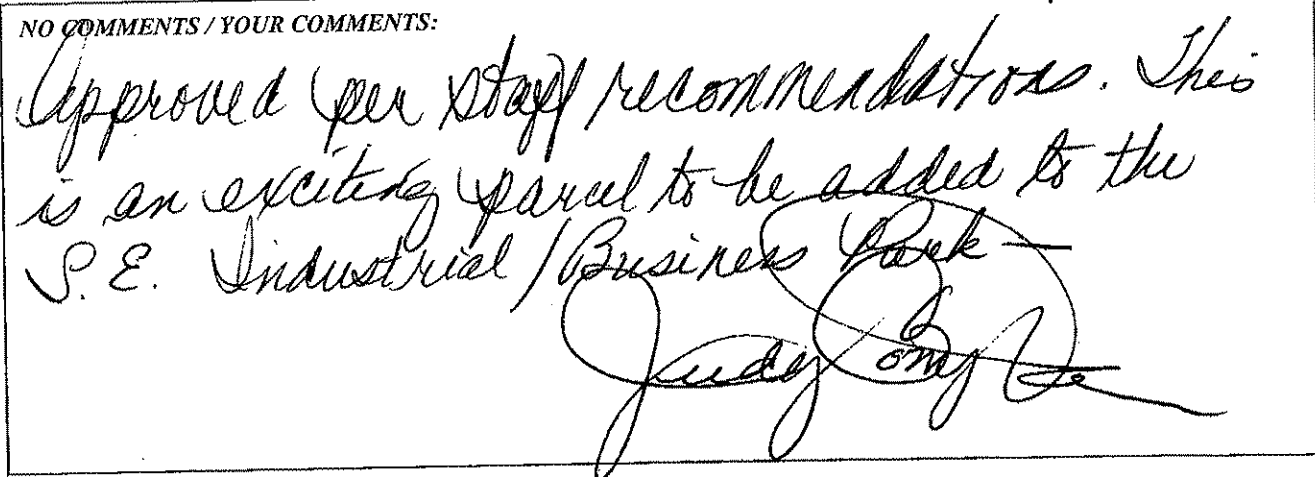 NO COMMENTS / YOUR COMMENTS:
Approved per staff recommendations. This
is an exciting parcel to be added to the
S.E. Industrial / Business Park —
Judy